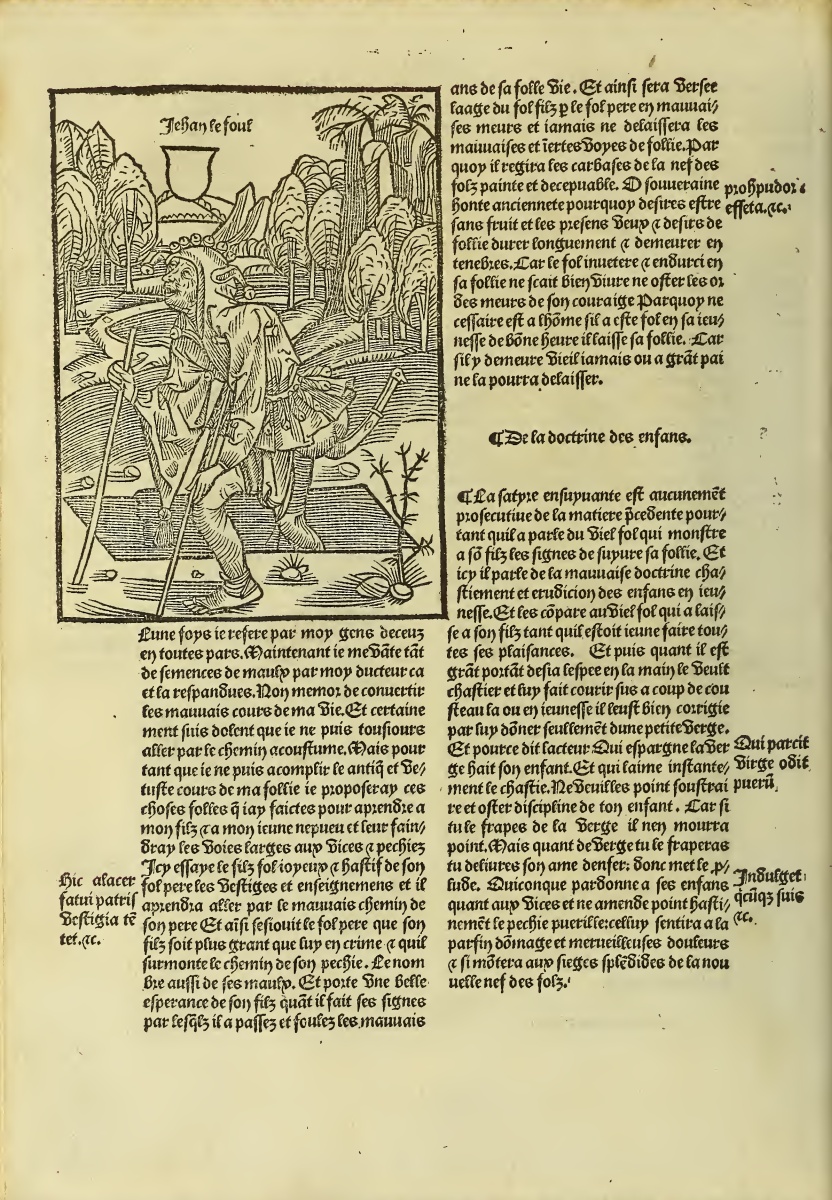 Jehan le foul
Lune foys ie refere par moy gens deceuz
en toutes pars. Maintenant ie me vāte tāt
de semences de maulx par moy ducteur ca
et la respandues. Non memor de conuertir
les mauuais cours de ma vie. Et certaine
ment suis dolent que ie ne puis tousiours
aller par le chemin acoustume. Mais pour
tant que ie ne puis acomplir le antiq̄ et ve/
tuste cours de ma follie ie proposeray ces
choses folles q̄ iay faictes pour aprendre a
mon filz ⁊ a mon ieune nepueu et leur fain/
dray les voies larges aux vices ⁊ pechiez
Icy essaye le filz fol ioyeux ⁊ hastif de son
fol pere les vestiges et enseignemens et il
aprendra aller par le mauuais chemin de
son pere Et aīsi sesiouit le fol pere que son
filz soit plus grant que luy en crime ⁊ quil
surmonte le chemin de son pechie. Le nom
bre aussi de ses maulx. Et porte vne belle
esperance de son filz quāt il fait ses signes
par lesq̄lz il a passez et foulez les mauuais
Hic alacer
fatui patris
vestigia tē
tet. ⁊c.
ans de sa folle vie. Et ainsi sera versee
laage du fol filz p le fol pere en mauuai/
ses meurs et iamais ne delaissera les
mauuaises et īertes voyes de follie. Par
quoy il regira les carbases de la nef des
folz painte et deceptuable. O souueraine
honte anciennete pourquoy desires estre
sans fruit et les presens veux ⁊ desirs de
follie durer longuement ⁊ demeurer en
tenebres. Car le fol inuetere ⁊ endurci en
sa follie ne scait bien viure ne oster les or
des meurs de son couraige Parquoy ne
cessaire est a lhōme sil a este fol en sa ieu/
nesse de bōne heure il laisse sa follie. Car
sil y demeure vieil iamais ou a grāt pai
ne la pourra delaisser.
proh pudor
effeta. ⁊c.
¶ De la doctrine des enfans.
¶ La satyre ensuyuante est aucunemēt
prosecutiue de la matiere p̄cedente pour/
tant quil a parle du vieil fol qui monstre
a sō filz les signes de suyure sa follie. Et
icy il parle de la mauuaise doctrine cha/
stiement et erudicion des enfans en ieu/
nesse. Et les cōpare au vieil fol qui a lais/
se a son filz tant quil estoit ieune faire tou/
tes ses plaisances. Et puis quant il est
grāt portāt desia lespee en la main le veult
chastier et luy fait courir sus a coup de cou
steau la ou en ieunesse il leust bien corrigie
par luy dōner seullemēt dune petite verge.
Et pource dit lacteur Qui espargne la ver
ge hait son enfant. Et qui laime instante/
ment le chastie. Ne veuilles point soustrai
re et oster discipline de ton enfant. Car si
tu le frapes de la verge il nen mourra
point. Mais quant de verge tu le fraperas
tu deliures son ame denfer: donc met le p/
lude. Quiconque pardonne a ses enfans
quant aux vices et ne amende point hasti/
nemēt le pechie puerille: celluy sentira a la
parfin dōmage et merueilleuses douleurs
⁊ si mōtera aux sieges splēdides de la nou
uelle nef des folz.
Qui parcit
virge odit
puerū.
Indulget
q̄cūq̄ suis
⁊c.